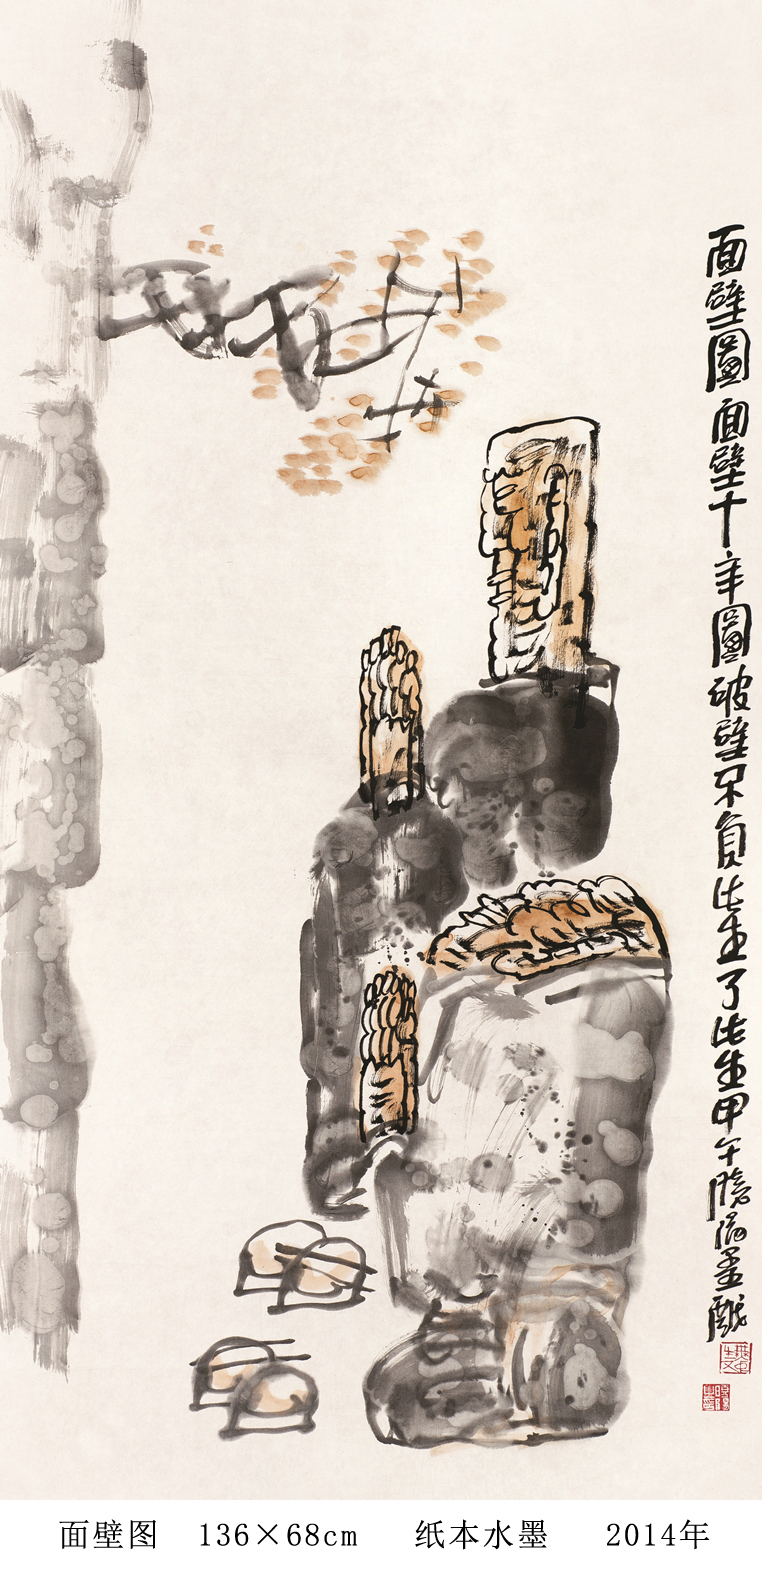 面壁圖面壁十年圖破壁不負此生了此生甲午勝濤墨戲
面壁图 136×68cm 纸本水墨 2014年